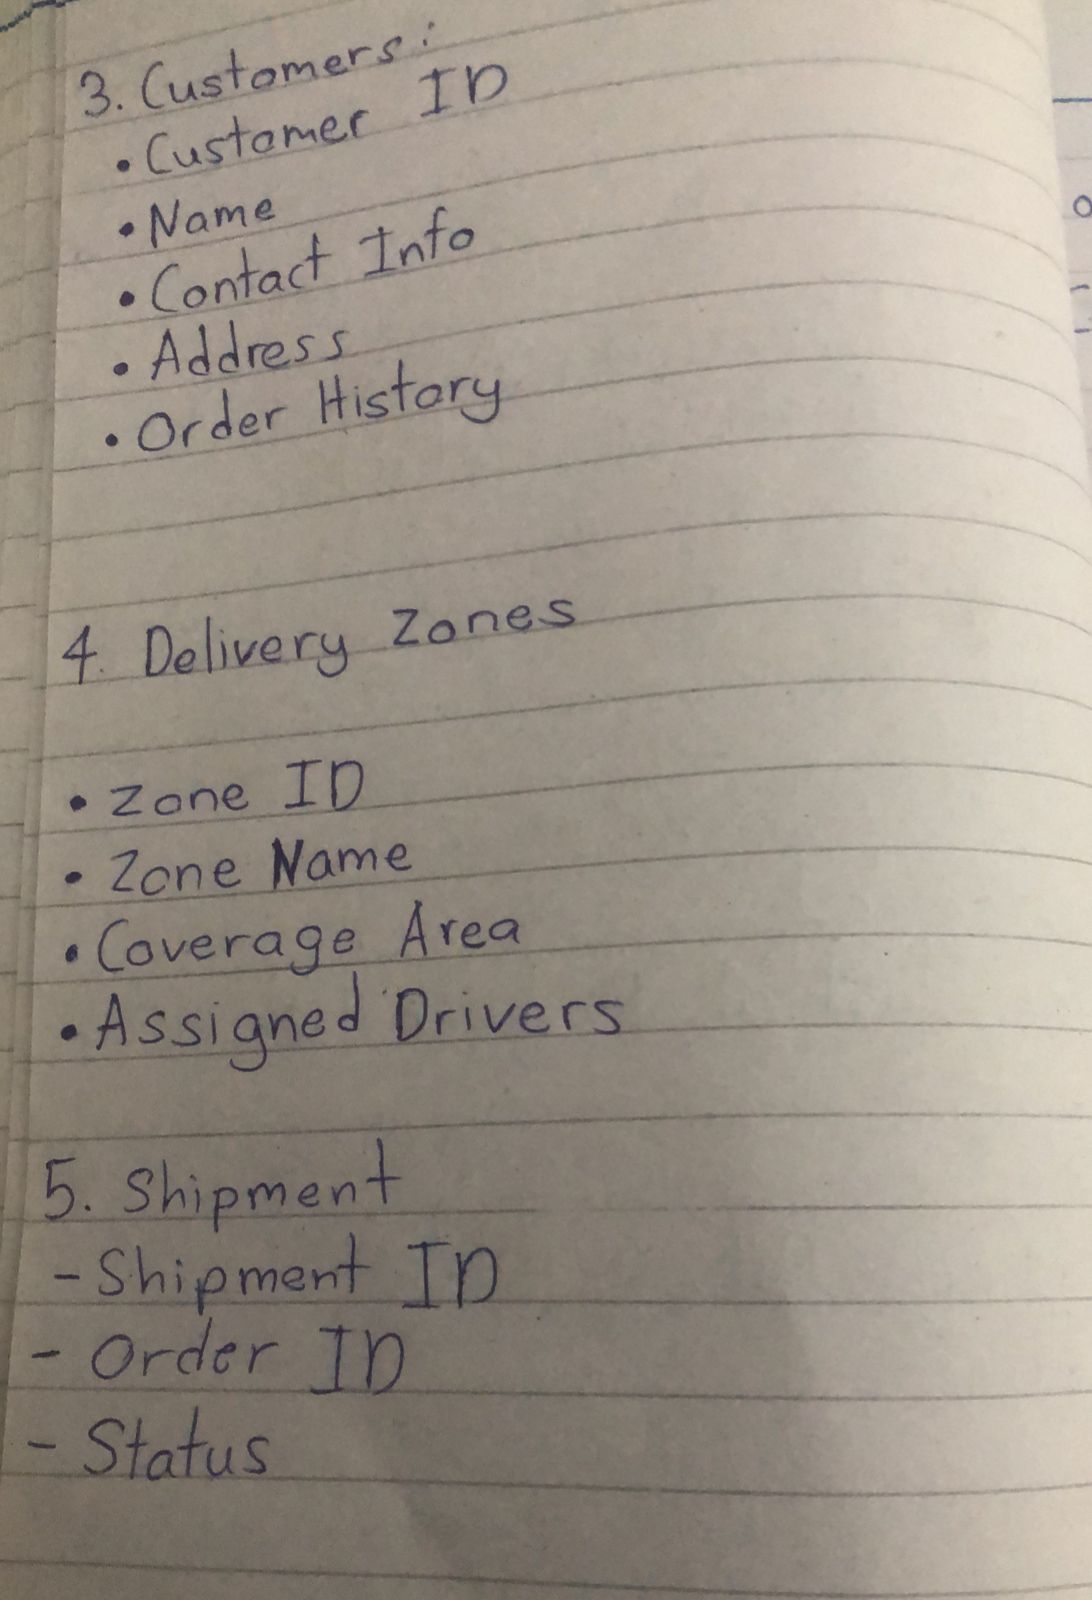 3. Customers:
• Customer ID
• Name
• Contact Info
• Address
• Order History
4. Delivery Zones
• Zone ID
• Zone Name
• Coverage Area
• Assigned Drivers
5. Shipment
- Shipment ID
- Order ID
- Status